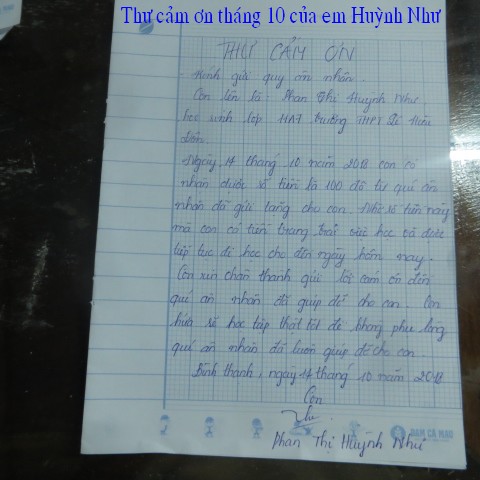 Thư cảm ơn tháng 10 của em Huỳnh Như
THƯ CẢM ƠN
Kính gửi quý ân nhân.
Con tên là Phan Thị Huỳnh Như
học sinh lớp 11A7 trường THPT
Ngày 14 tháng 10 năm 2013 con có
nhận được số tiền là 100 đô từ quí ân
nhân đã gửi tặng cho con. Nhờ số tiền này
mà con có tiền trang trải việc học và được
tiếp tục đi học cho đến ngày hôm nay.
Con xin chân thành gửi lời cám ơn đến
quí ân nhân đã giúp đỡ cho con. Con
hứa sẽ học tập thật tốt để không phụ lòng
quí ân nhân đã luôn giúp đỡ cho con.
Bình thạnh, ngày 14 tháng 10 năm 2013
Con
Như
Phan Thị Huỳnh Như